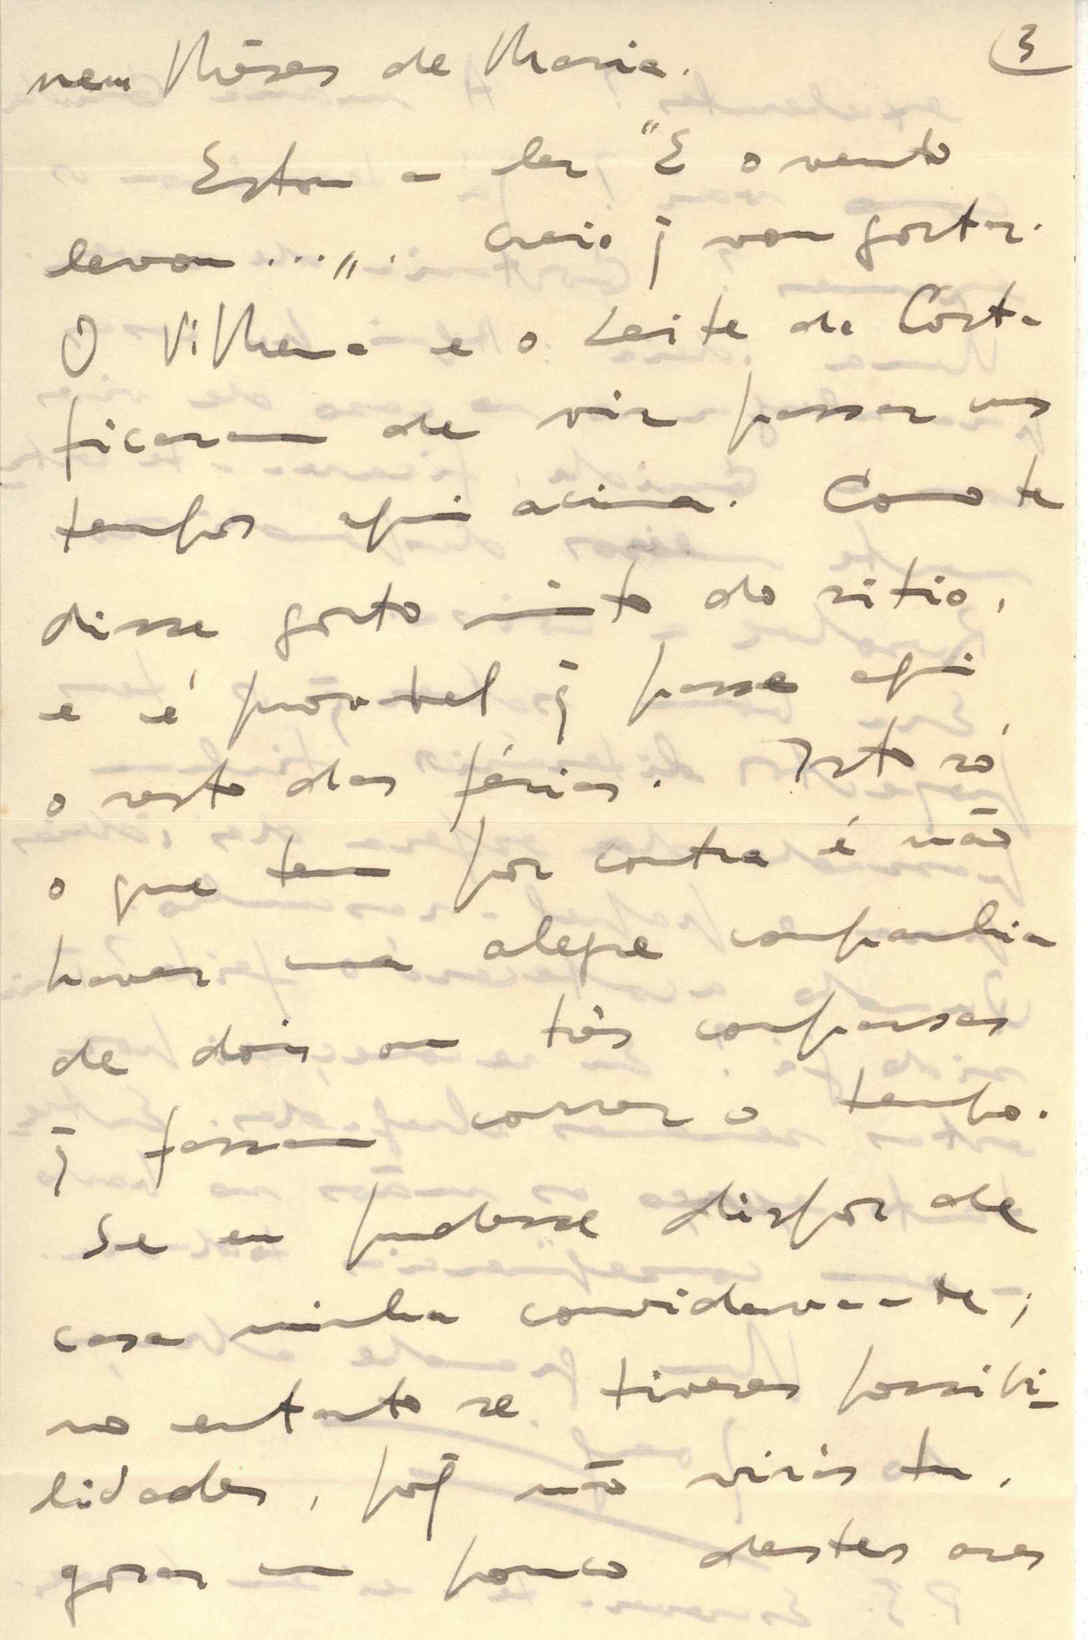 3
nem Mêses de Maria.
Estou a ler "E o vento
levou...". Creio q̃ vou gostar.
O Vilhena e o Leite da Costa
ficaram de vir passar uns
tempos aqui acima. Como te
disse gosto muito do sitio,
e é provavel q̃ passe aqui
o resto das férias. Isto só
o que tem por contra é não
haver uma alegre companhia
de dois ou três comparsas
q̃ fassam correr o tempo.
Se eu pudesse dispor de
casa minha convidava-te;
no entanto se tiveres possibi-
lidades, porq̃ não virás tu,
gosar um pouco destes ares